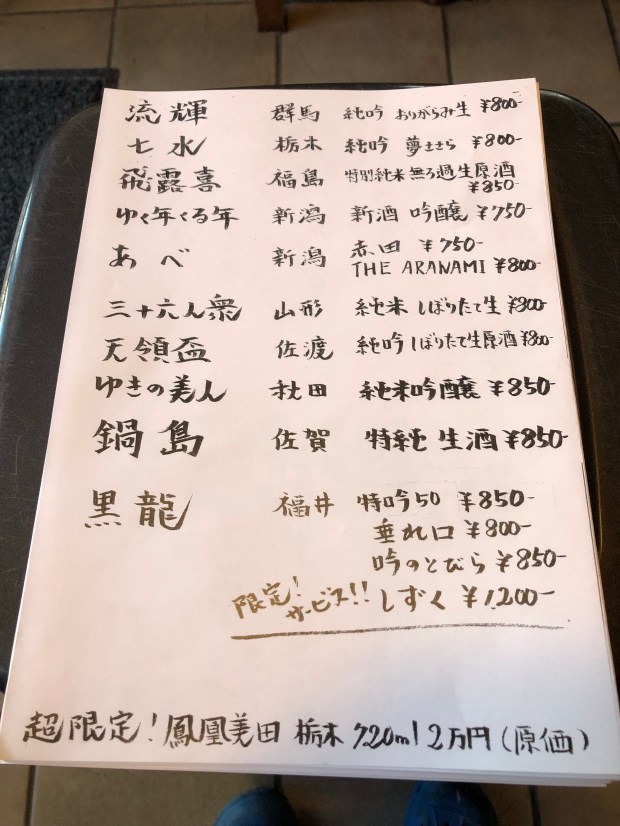 流輝 群馬 純吟 おりがらみ生 ¥800-
七水 栃木 純吟 夢ささら ¥800-
飛露喜 福島 特別純米 無ろ過生原酒 ¥850-
ゆく年くる年 新潟 新酒 吟醸 ¥750-
あべ 新潟 赤田 ¥750-
THE ARANAMI ¥800-
三十六人衆 山形 純米 しぼりたて生 ¥800-
天領盃 佐渡 純吟 しぼりたて生原酒 ¥800-
ゆきの美人 秋田 純米吟醸 ¥850-
鍋島 佐賀 特純 生酒 ¥850-
黒龍 福井 特吟50 ¥850-
垂れ口 ¥800-
吟のとびら ¥850-
限定! サービス!! しずく ¥1,200-
超限定! 鳳凰美田 栃木 720ml 2万円(原価)